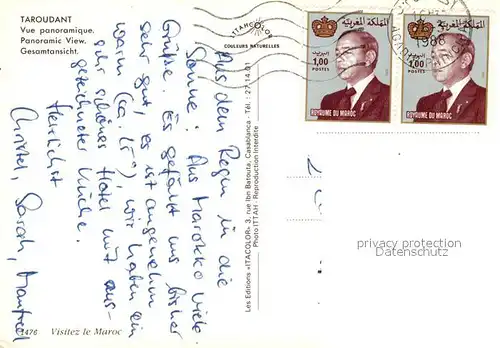 TAROUDANT
Vue panoramique.
Panoramic View.
Gesamtansicht.
ITTAHCOLOR
COULEURS NATURELLES
Aus dem Regen in die
Sonne! Aus Marokko viele
Grüße. Es gefällt uns bisher
sehr gut, es ist angenehm
warm (ca. 25°), wir haben ein
sehr schönes Hotel mit aus-
gezeichneter Küche.
Herzlichst
Christel, Sarah, Manfred
Les Editions «ITTACOLOR» 3, rue Ibn Batouta, Casablanca - Tél.: 27.14.01
Photo ITTAH - Reproduction Interdite
المملكة المغربية
البريد
1,00
POSTES
ROYAUME DU MAROC
المملكة المغربية
1,00
POSTES
ROYAUME DU MAROC
1988
privacy protection
Datenschutz
1476 Visitez le Maroc